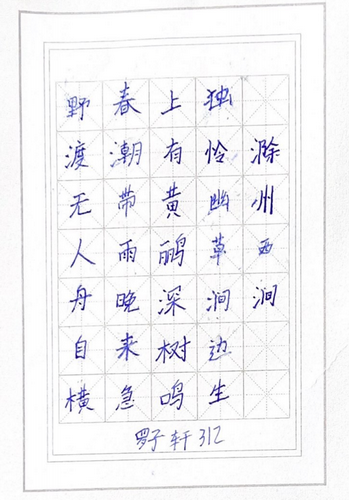 滁州西涧
独怜幽草涧边生
上有黄鹂深树鸣
春潮带雨晚来急
野渡无人舟自横
罗子轩312